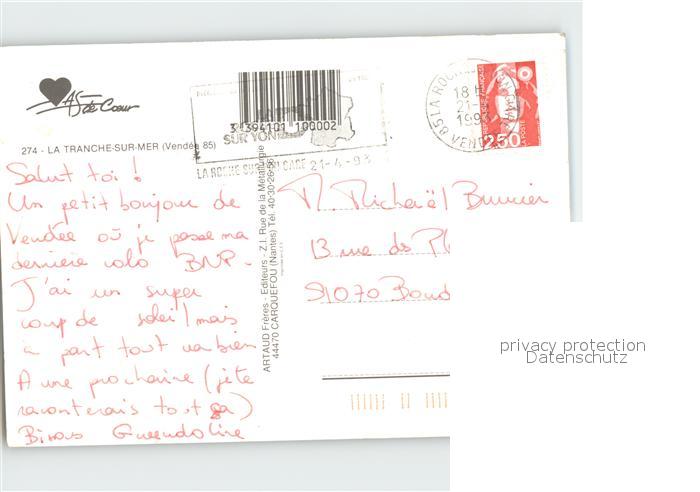 As de Cœur
274 - LA TRANCHE-SUR-MER (Vendée 85)
Salut toi !
Un petit bonjour de
Vendée où je passe ma
dernière colo BNP -
J'ai un super
coup de soleil mais
à part tout va bien
A une prochaine (je te
raconterais tout ça)
Bisous Gwendoline
ARTAUD Frères - Editeurs - Z.I. Rue de la Métallurgie
44470 CARQUEFOU (Nantes) Tél. 40-30-26-56
3 394101 100002
SUR YON
LA ROCHE SUR YON CARE 21-4-93
85 LA ROCHE
18 H
21-
1993
VENDEE
REPUBLIQUE FRANÇAISE
2,50
LA POSTE
M. Michaël Bunier
13 rue des Pl
91070 Bond
privacy protection
Datenschutz